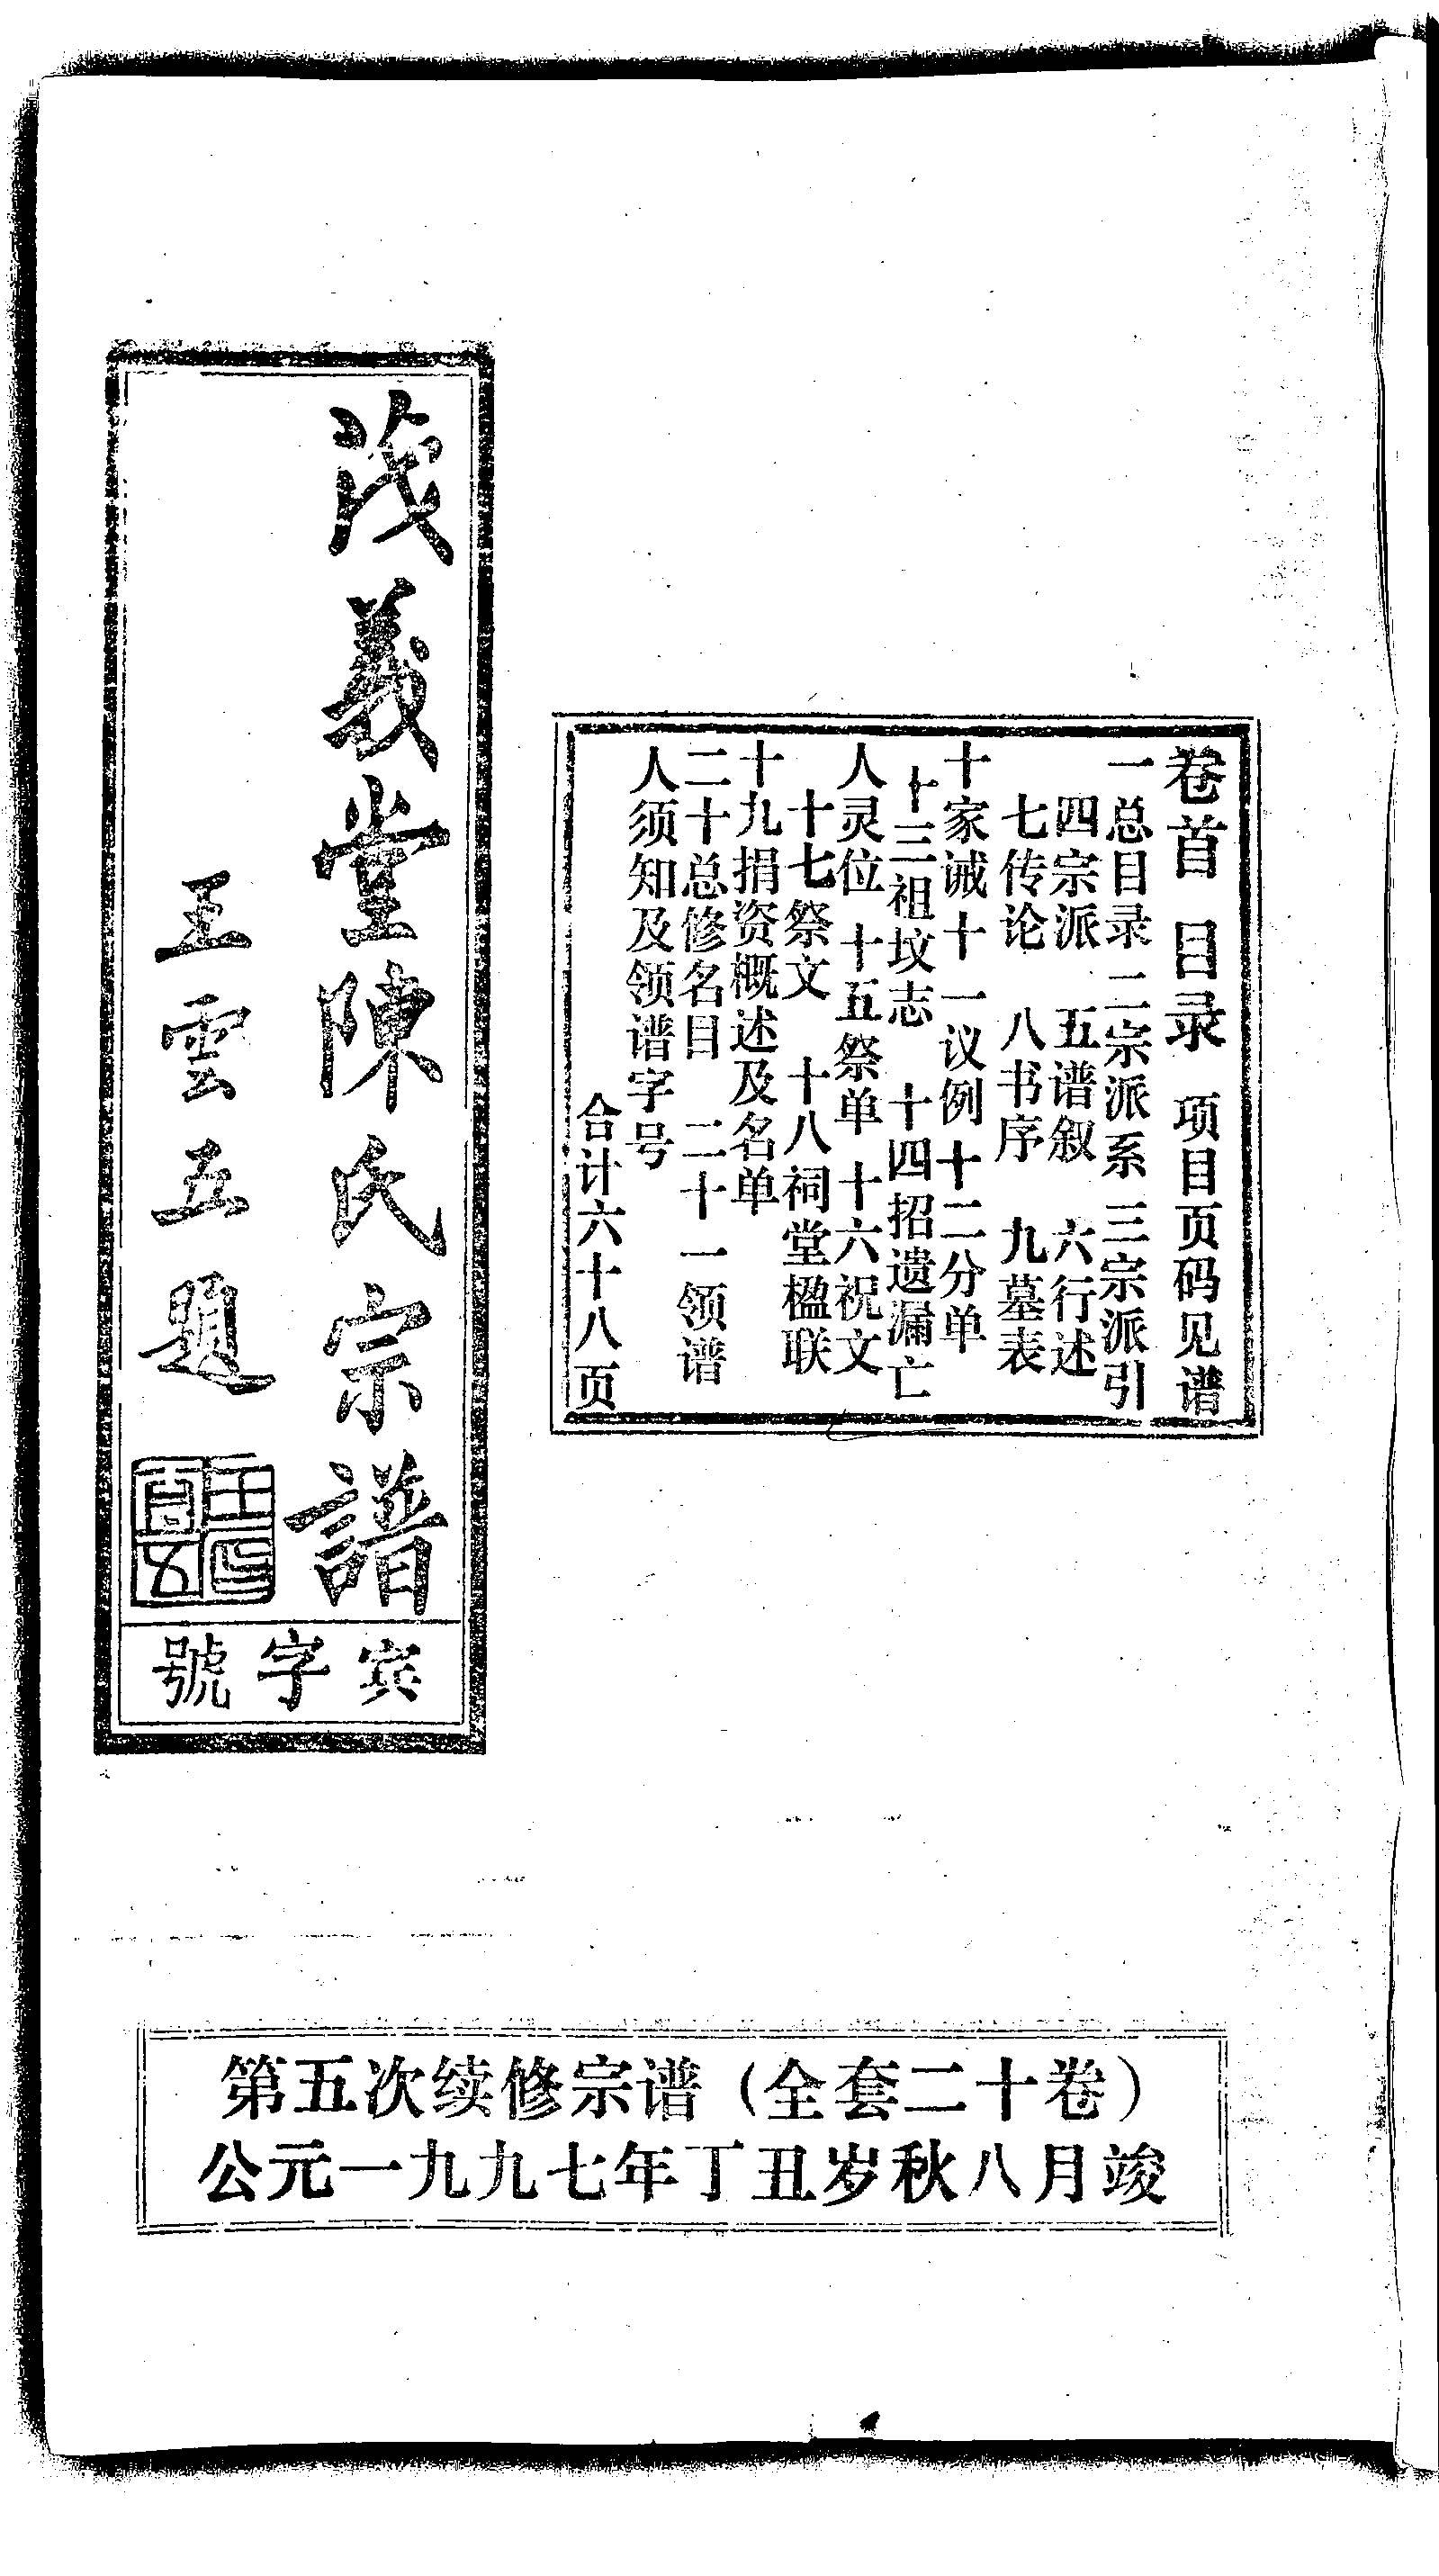 卷首 目录 项目页码见谱
一总目录 二宗派系 三宗派引
四宗派 五谱叙 六行述
七传论 八书序 九墓表
十家诫 十一议例 十二分单
十三祖坟志 十四招遗漏亡
人灵位 十五祭单 十六祝文
十七祭文 十八祠堂楹联
十九捐资概述及名单
二十总修名目 二十一领谱
人须知及领谱字号
合计六十八页
義堂陳氏宗譜
王雲五題
宾字號
第五次续修宗谱（全套二十卷）
公元一九九七年丁丑岁秋八月竣